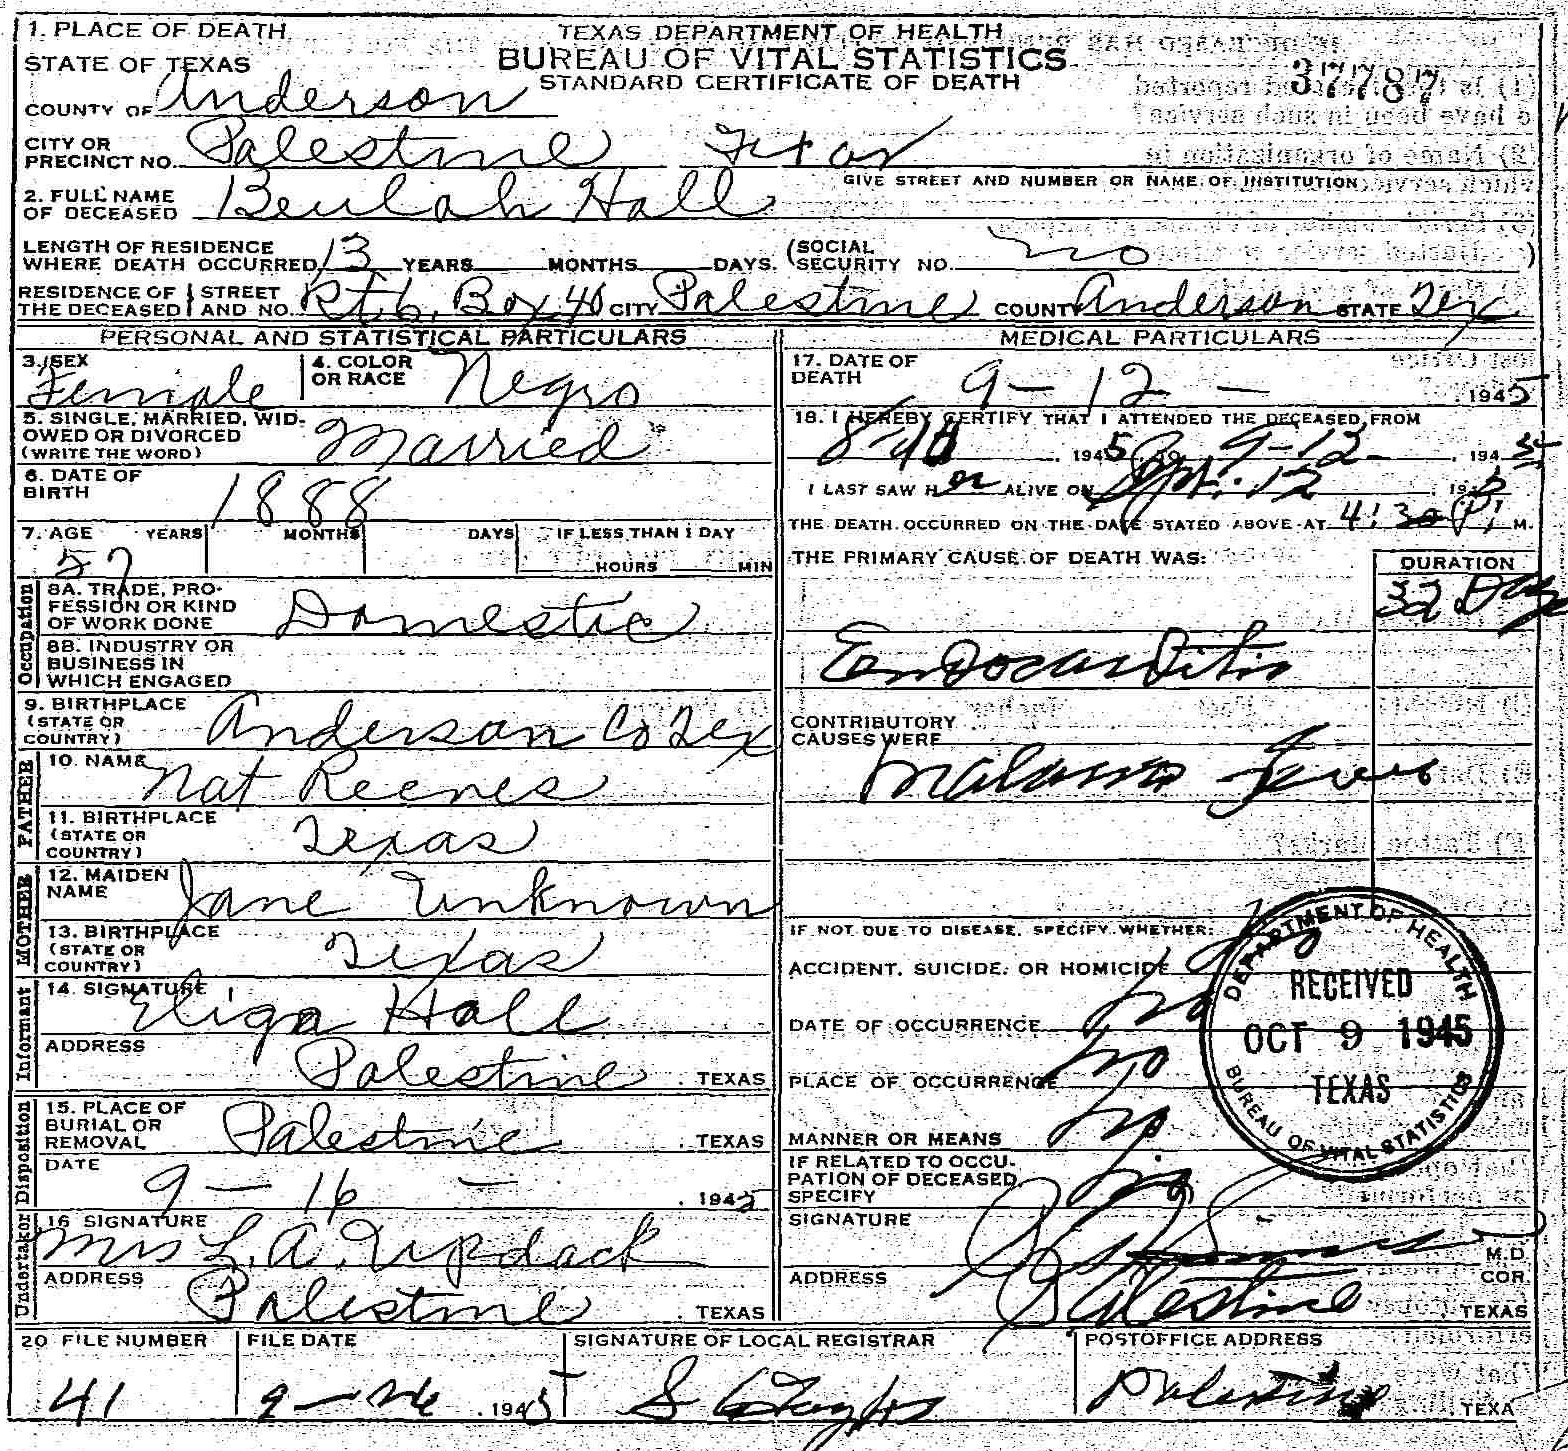 1. PLACE OF DEATH
TEXAS DEPARTMENT OF HEALTH
BUREAU OF VITAL STATISTICS
STANDARD CERTIFICATE OF DEATH
37787
STATE OF TEXAS
COUNTY OF Anderson
CITY OR PRECINCT NO. Palestine Texas
GIVE STREET AND NUMBER OR NAME OF INSTITUTION
2. FULL NAME OF DECEASED Beulah Hall
LENGTH OF RESIDENCE WHERE DEATH OCCURRED 13 YEARS MONTHS DAYS. (SOCIAL SECURITY NO. no )
RESIDENCE OF THE DECEASED STREET AND NO. Rt. 6, Box 40 CITY Palestine COUNTY Anderson STATE Tex
PERSONAL AND STATISTICAL PARTICULARS
3. SEX Female
4. COLOR OR RACE Negro
5. SINGLE, MARRIED, WIDOWED OR DIVORCED (WRITE THE WORD) Married
6. DATE OF BIRTH 1888
7. AGE YEARS MONTHS DAYS IF LESS THAN 1 DAY
57 HOURS MIN
Occupation
8A. TRADE, PROFESSION OR KIND OF WORK DONE Domestic
8B. INDUSTRY OR BUSINESS IN WHICH ENGAGED
9. BIRTHPLACE (STATE OR COUNTRY) Anderson Co Tex
FATHER
10. NAME Nat Reeves
11. BIRTHPLACE (STATE OR COUNTRY) Texas
MOTHER
12. MAIDEN NAME Jane Unknown
13. BIRTHPLACE (STATE OR COUNTRY) Texas
Informant
14. SIGNATURE Eliga Hall
ADDRESS Palestine TEXAS
Disposition
15. PLACE OF BURIAL OR REMOVAL Palestine TEXAS
DATE 9-16- 1945
Undertaker
16 SIGNATURE Mrs L. A. Updack
ADDRESS Palestine TEXAS
MEDICAL PARTICULARS
17. DATE OF DEATH 9-12- 1945
18. I HEREBY CERTIFY THAT I ATTENDED THE DECEASED FROM
1945 9-12- 1945
I LAST SAW HER ALIVE ON Sept. 12 1945
THE DEATH OCCURRED ON THE DATE STATED ABOVE AT 4:30 P. M.
THE PRIMARY CAUSE OF DEATH WAS:
DURATION
32 Days
Endocarditis
CONTRIBUTORY CAUSES WERE
Malaria Fever
IF NOT DUE TO DISEASE, SPECIFY WHETHER:
ACCIDENT, SUICIDE, OR HOMICIDE No
DATE OF OCCURRENCE No
PLACE OF OCCURRENCE No
MANNER OR MEANS No
IF RELATED TO OCCUPATION OF DECEASED SPECIFY No
SIGNATURE M.D.
COR.
ADDRESS Palestine TEXAS
DEPARTMENT OF HEALTH
RECEIVED
OCT 9 1945
TEXAS
BUREAU OF VITAL STATISTICS
20 FILE NUMBER FILE DATE SIGNATURE OF LOCAL REGISTRAR POSTOFFICE ADDRESS
41 9-26 1945 Taylor Palestine TEXA